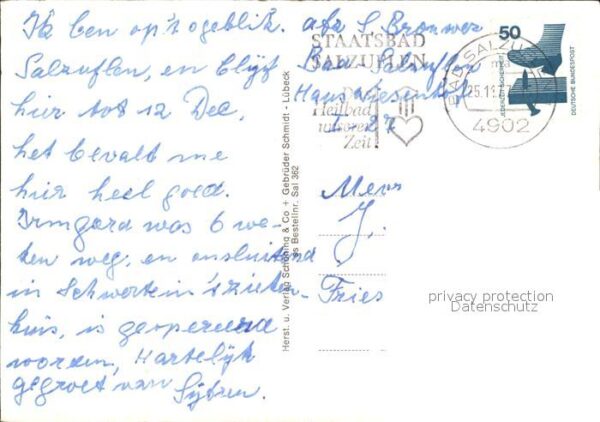 Ik ben op 't ogeblik.
Salzuflen, en blijf
hier tot 12 Dec,
het bevalt me
hier heel goed.
Irmgard was 6 we-
ken weg, en ansluitend
in Schwerte in 't zieken-
huis, is geopereerd
worden, Hartelijk
gegroet van
Sijtren.
afz S Brouwer
Bad Salzuflen
4-27
Mevr
J.
Fries
STAATSBAD
SALZUFLEN
Das
Heilbad
unserer
Zeit
BAD SALZUFLEN
25.11.77
4902
50
JEDERZEIT SICHERHEIT
DEUTSCHE BUNDESPOST
Herst. u. Verlag Schöning & Co + Gebrüder Schmidt - Lübeck
Bestellnr. Sal 362
privacy protection
Datenschutz